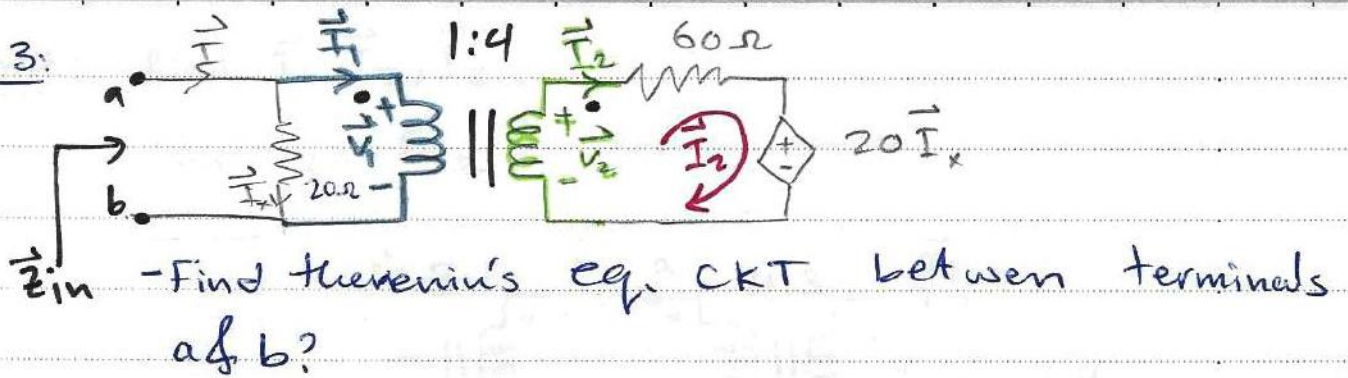 3:
I I₁ 1:4 I₂ 60Ω
a + + 
V₁ V₂ I₂ + - 20 Iₓ
Iₓ 20Ω - -
b
Zin -Find thevenin's eq. CKT between terminals
a & b?